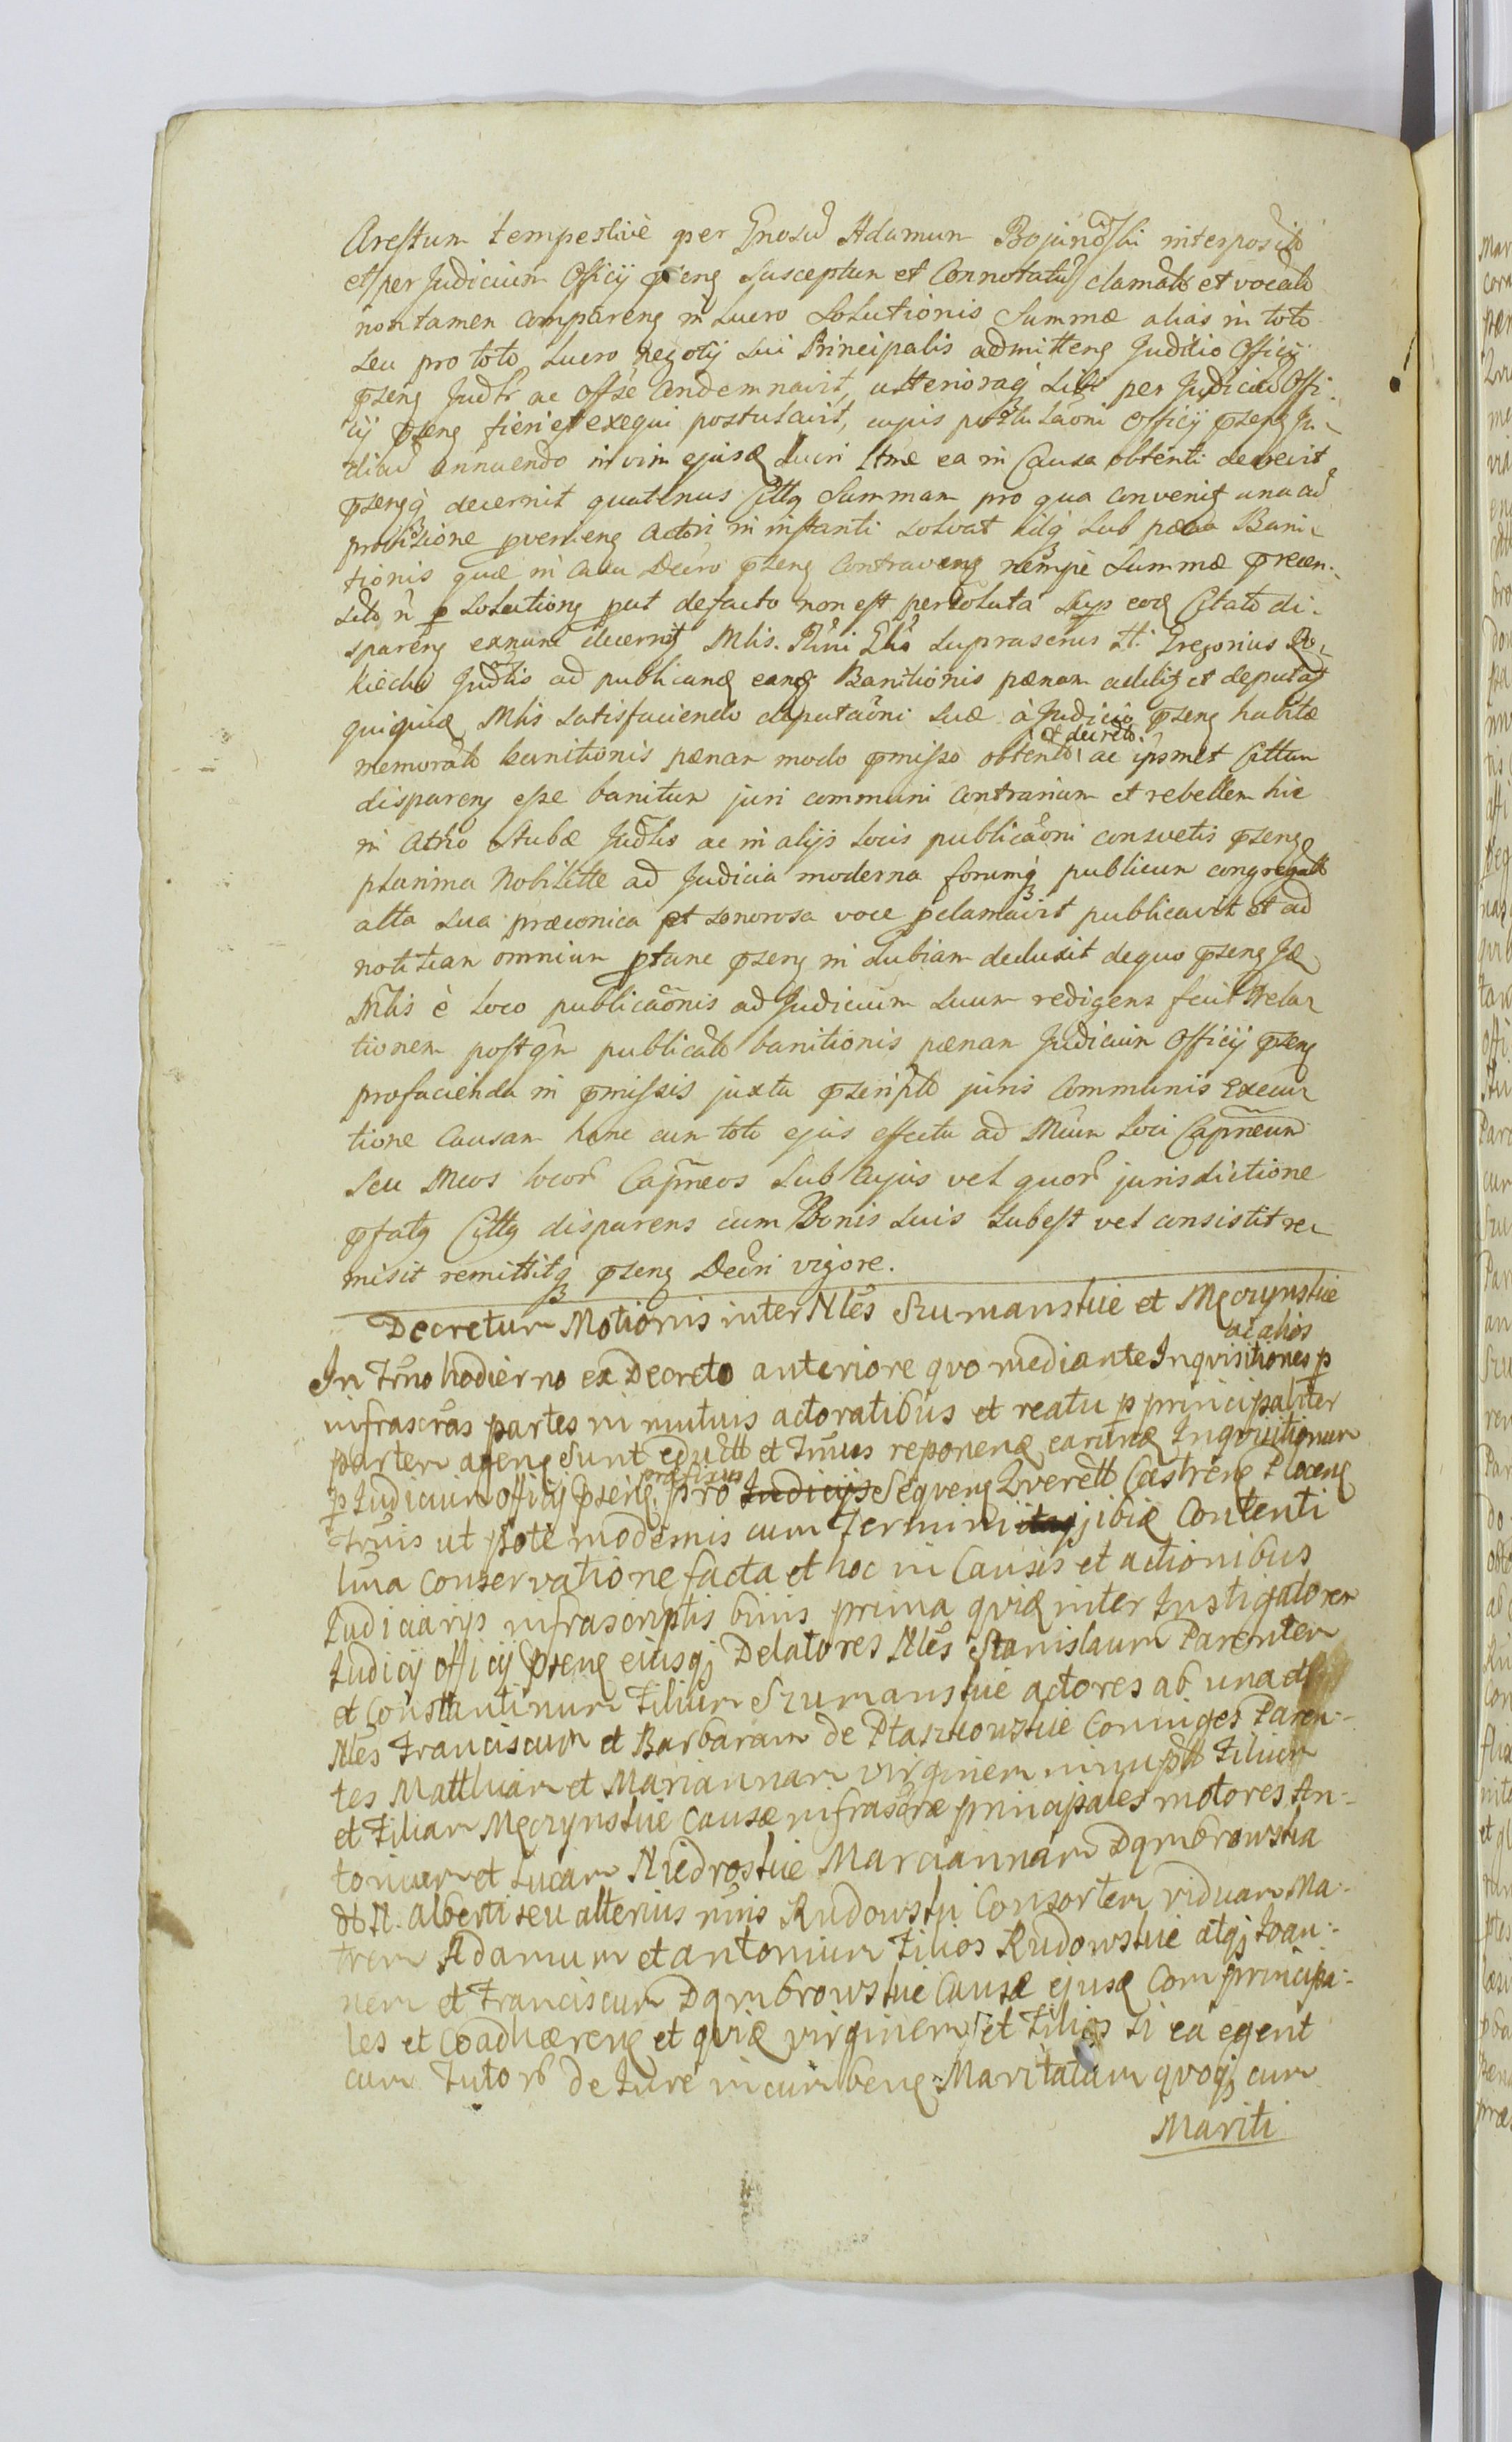 Arestum tempestivè per Gnosū Adamum Bojanowski interposit̄
et per Judicium Officij pñs susceptum et Connotatū clamat̄ et vocat̄
non tamen comparens in Lucro Solutionis Summæ alias in toto
seu pro toto Lucro negotij sui Principalis admittens Judicio Officij
pñs Judłr ac offse condemnavit, ulterioraq sibi per Judiciū Offi-
cij pñs fieri et exequi postulavit, cujus postulaōni Officij pñs Ju-
diciū annuendo in vim ejusd Lucri ea in Causa obtenti decrevit
pñsq decernit quatenus Cittus Summam pro qua convenit una cū
provisione proveniens actori in instanti solvat idq sub pæna Bani-
tionis quæ in casu Decro pñs Contraveng nempè Summæ præcen-
 ñ solutiong put defacto non est persoluta eod Citato di-
sparens exnunc decernit Mlis. suprascrius Gregorius
 Judlis ad publicand eand Banitionis pænam addit et deputat
quiquid Mlis satisfaciendo deputaōni suæ à Judicio pñs habitæ
memorat̄ banitionis pænam modo pmisso obtent̄ et decret̄ ac ipsmet Cittum
disparens esse banitum juri communi contrarium et rebellem hic
in Atrio Stubæ Judlis ac in alijs locis publicaōni consvetis pñs
plurima Nobilitte ad Judicia moderna forumq publicum congregat̄
alta sua præconica et sonorosa voce pclamavit publicavit et ad
notitiam omnium ptunc pñs in dubiam deduxit dequo pñs Id
Mlis è loco publicaōnis ad Judicium suum redigens fecit Rela-
tionem post qm publicat̄ banitionis pænam Judicium Officij pñs
profacienda in pmissis juxta pscript̄ juris Communis Execu-
tione Causam hanc cum toto ejus effectu ad Mcum Loci Capñeum
seu Mcos locor Capñeos sub cujus vel quor jurisdictione
pfatus Cittus disparens cum Bonis suis subest vel consistit re-
misit remittitq pñs Decri vigore.
Decretum Motionis inter Nles Szumanskie et Męczynskie
In Trno hodierno ex Decreto anteriore quo mediante Inqvisitiones p ac alios
infrascras partes in mutuis actoratibus et reatu p principaliter
partem agens sunt eductt et Trnus reponend earund Inqvisitionum
p Judicium officij pseng. præfixus pro Judicijs Seqveng Qverell Castreng Ploceng
Trnis ut pote modernis cum Termini itaq jibid Contenti
lima Conservatione facta et hoc in Causis et actionibus
Judiciarijs infrascriptis binis prima qvid inter Instigatorem
Judicij officij pseng eiusq Delatores Nles Stanislaum Parentem
et Constantinum Filium Szumanskie actores ab una et
Nles Franciscum et Barbaram de Ptaszkowskie Conniges Paren-
tes Matthiam et Mariannam virginem innuptt Filium
et Filiam Męczynskie Causæ infrascræ principales motores An-
tonium et Lucam Niedroskie Mariannam Dąmbrowska
N. Alberti seu alterius nōis Rudowski Consortem viduam Ma-
trem Adamum et antonium Filios Rudowskie atq Joan-
nem et Franciscum Dąmbrowskie Causæ ejusd Comprincipa-
les et Coadhæreng et qvid virginem et Filios si ea egent
cum Tutorb de Jure incumbeng Maritatam qvoq cum
Mariti